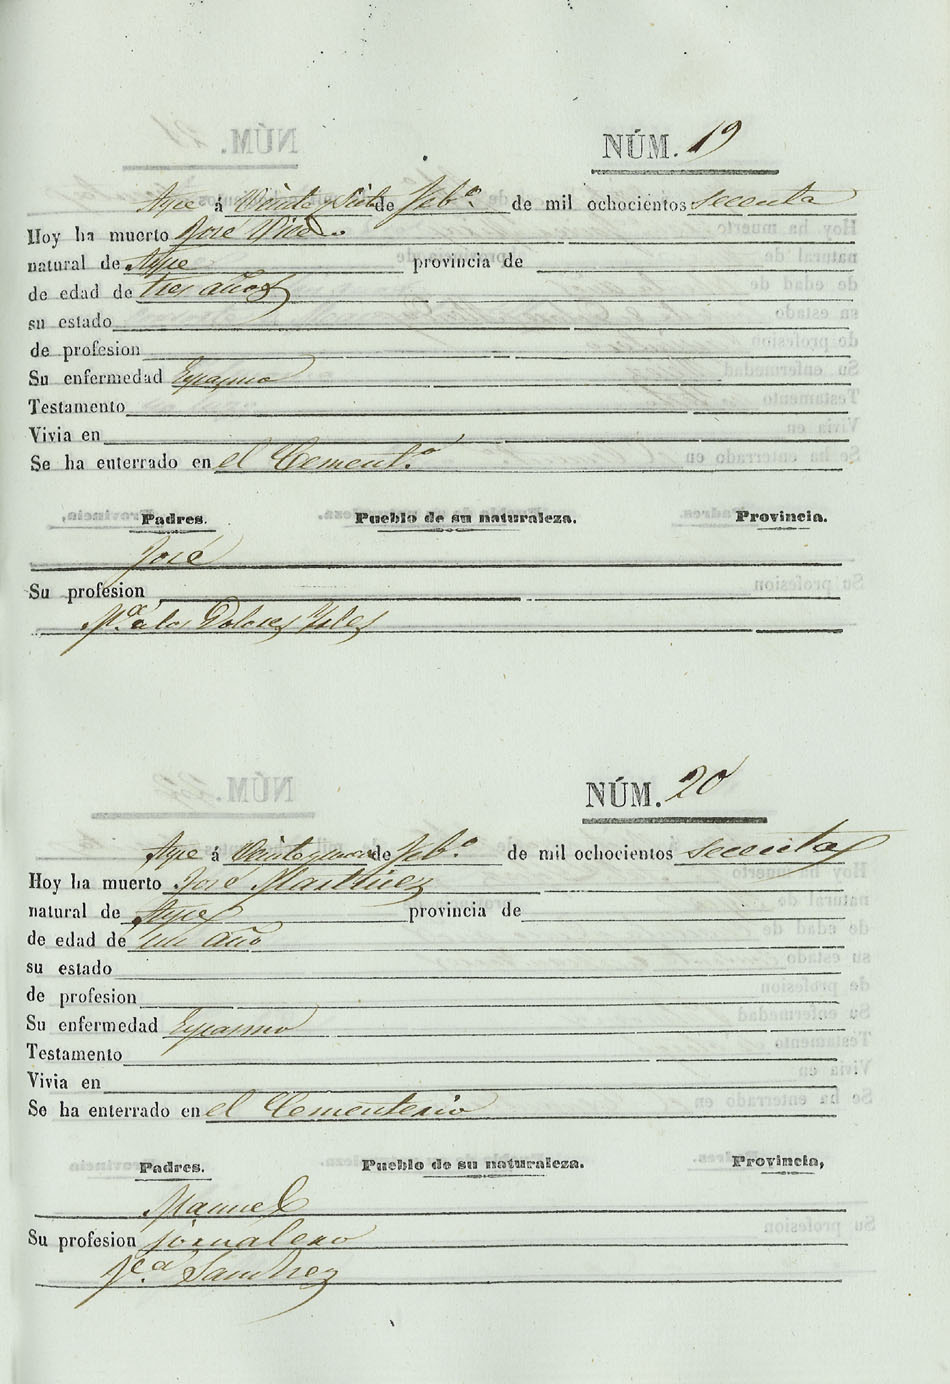 NÚM. 19
Aspe á Veinte y Siete de Feb.º de mil ochocientos secenta
Hoy ha muerto José
natural de Aspe provincia de
de edad de tres años
su estado
de profesion
Su enfermedad Espasmo
Testamento
Vivia en
Se ha enterrado en el Cement.º
Padres. Pueblo de su naturaleza. Provincia.
José
Su profesion
M.ª de los Dolores
NÚM. 20
Aspe á de Feb.º de mil ochocientos secenta
Hoy ha muerto José Martinez
natural de Aspe provincia de
de edad de un año
su estado
de profesion
Su enfermedad Espasmo
Testamento
Vivia en
Se ha enterrado en el Cementerio
Padres. Pueblo de su naturaleza. Provincia,
Manuel
Su profesion jornalero
Fca Sanchez